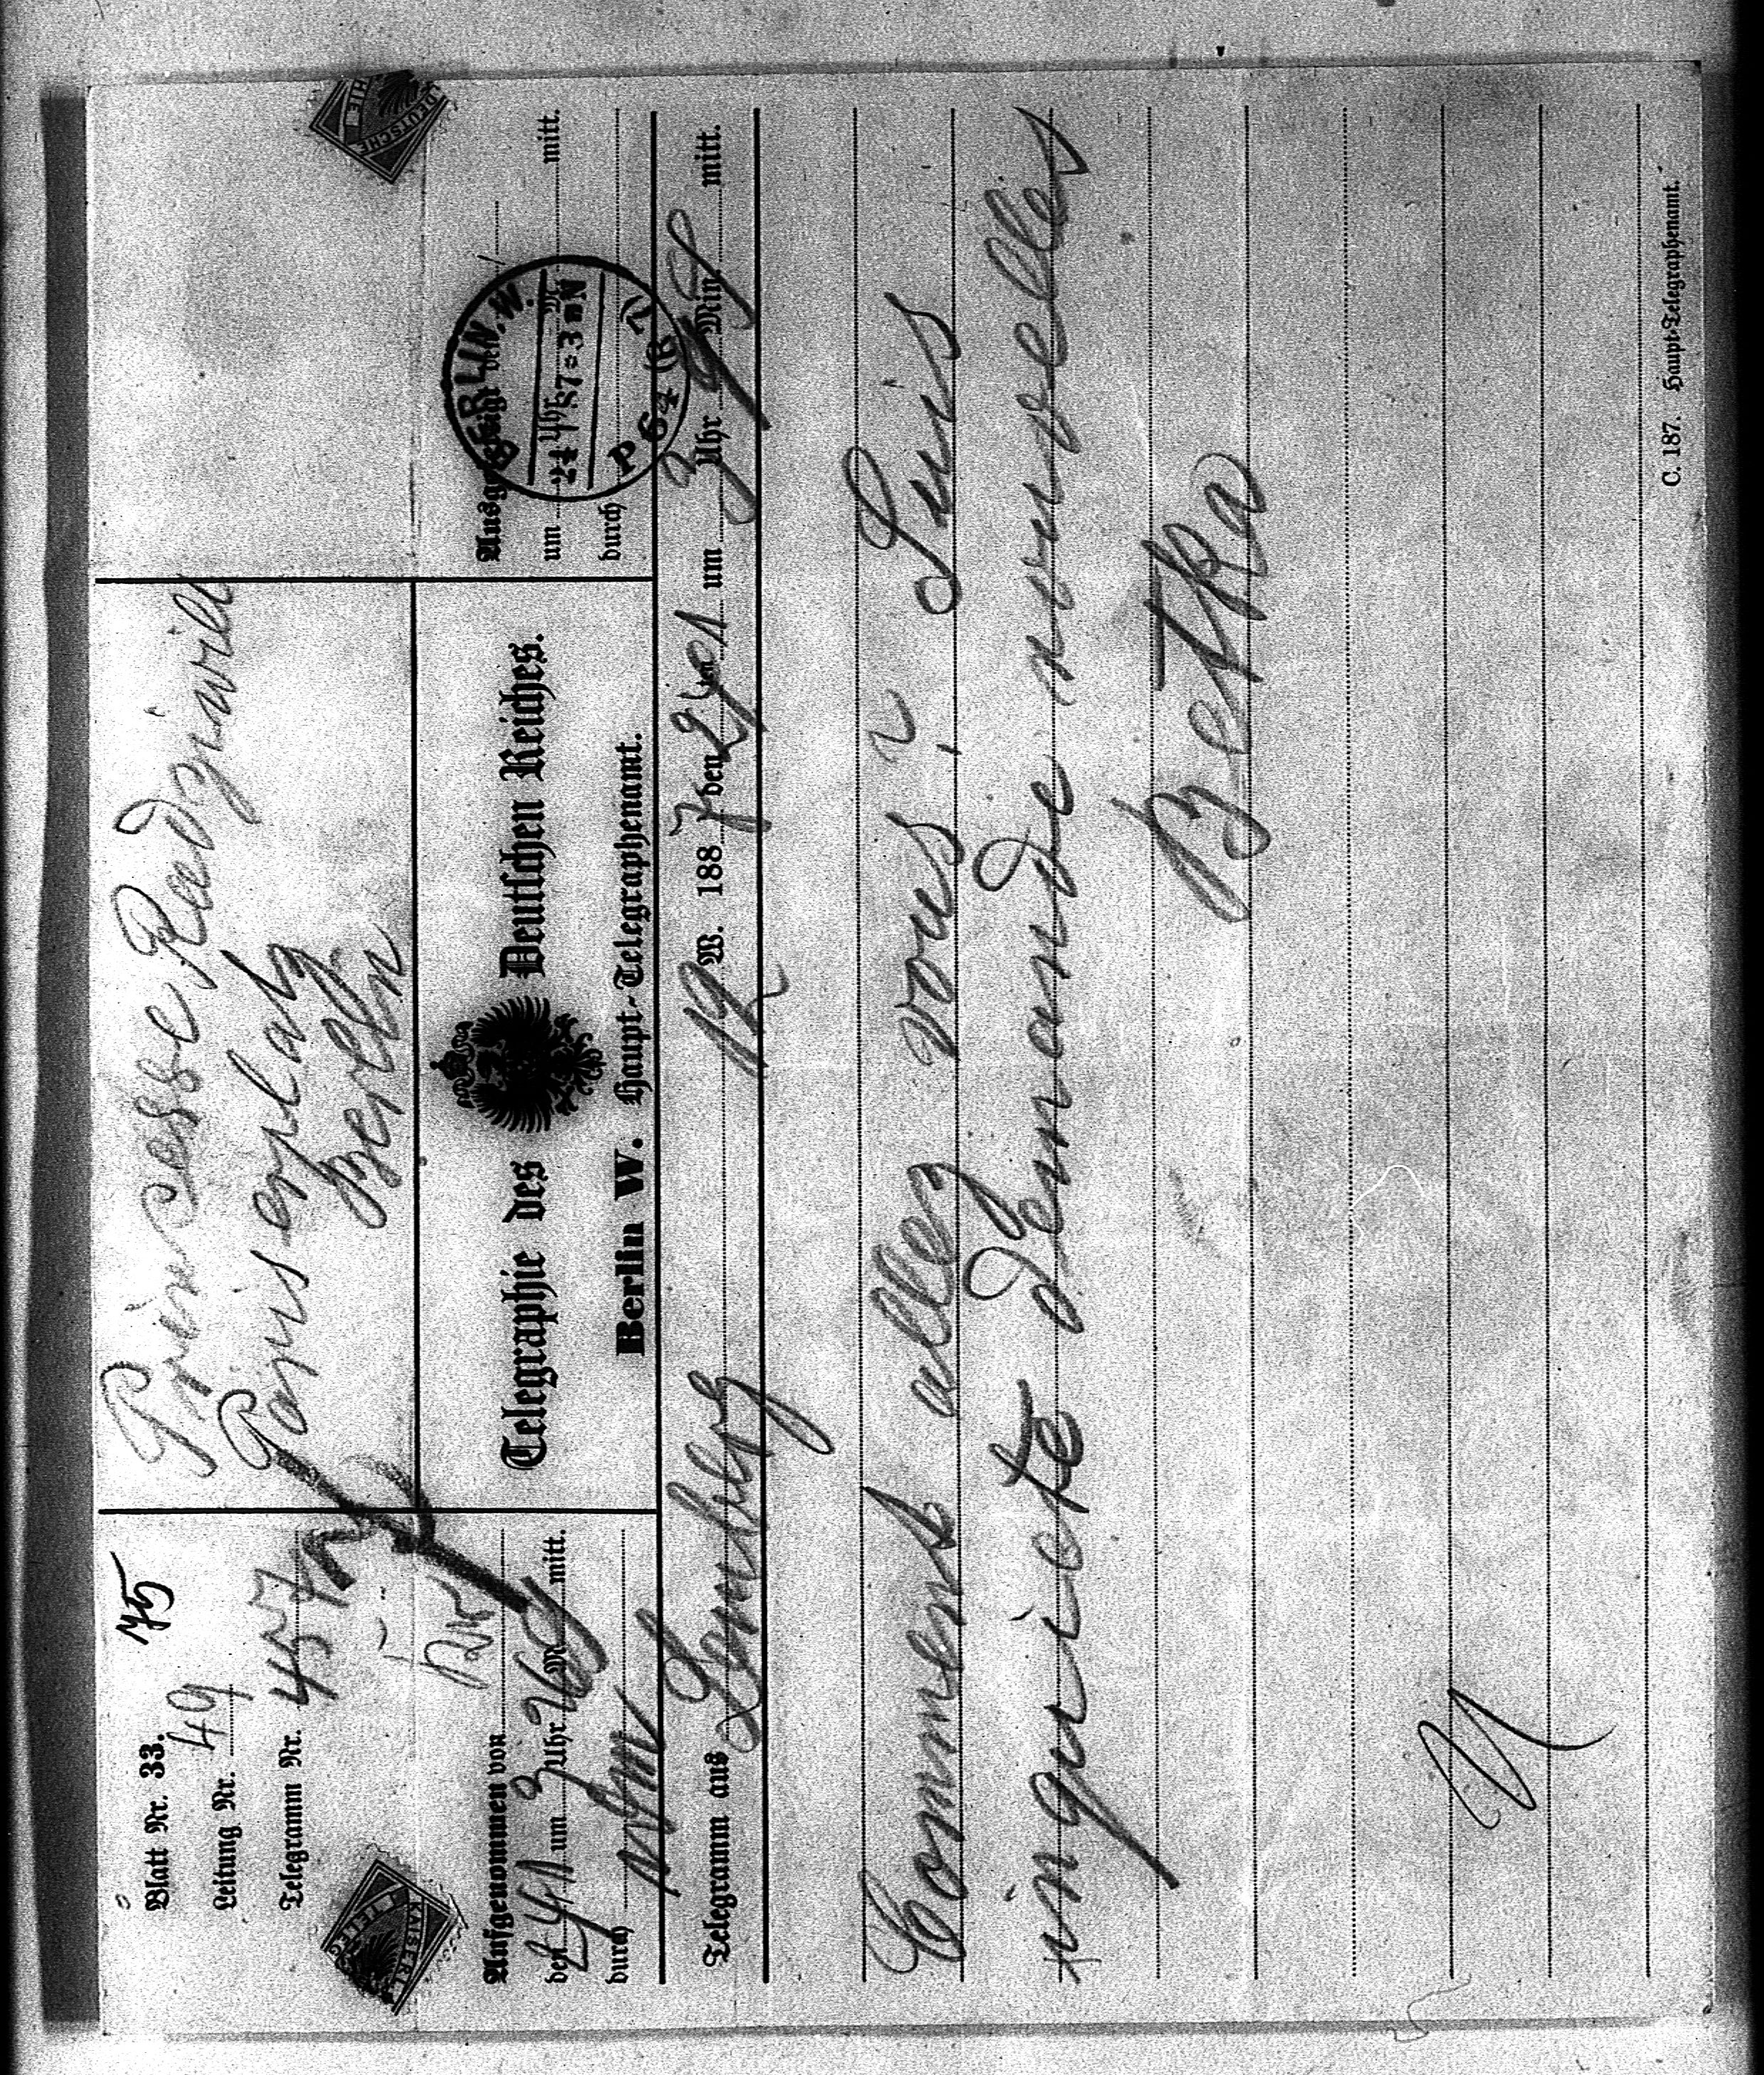 Blatt Nr. 33.
Leitung Nr. 49
Telegramm Nr. 457
Princesse Radziwill
Pariserplatz
Berlin
Aufgenommen von
den 24/1 um 3 Uhr 26 M mitt.
durch
Telegraphie des Deutschen Reiches.
Berlin W. Haupt-Telegraphenamt.
Ausgefertigt den
um Uhr M mitt.
durch
BERLIN.W.
24 1 87 3 N
P 64 (R 1)
Telegramm aus Lemberg 12 W. 1887 den 24/1 um 3 Uhr Min. mitt.
Comment allez vous? Suis
inquiete demande nouvelles
Betka
C. 187. Haupt-Telegraphenamt.
DEUTSCHE
KAISERL
TELEG